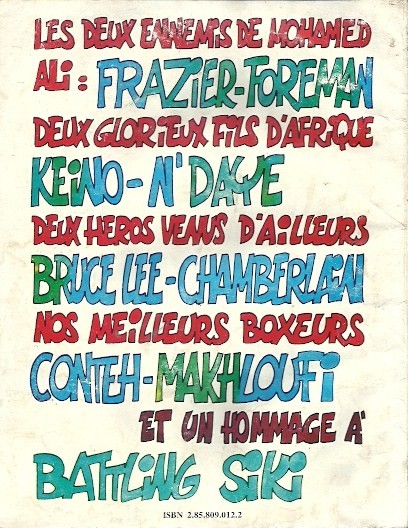 LES DEUX ENNEMIS DE MOHAMED
ALI : FRAZIER-FOREMAN
DEUX GLORIEUX FILS D'AFRIQUE
KEINO-N'DAYE
DEUX HEROS VENUS D'AILLEURS
BRUCE LEE-CHAMBERLAIN
NOS MEILLEURS BOXEURS
CONTEH-MAKHLOUFI
ET UN HOMMAGE A'
BATTLING SIKI
ISBN 2.85.809.012.2